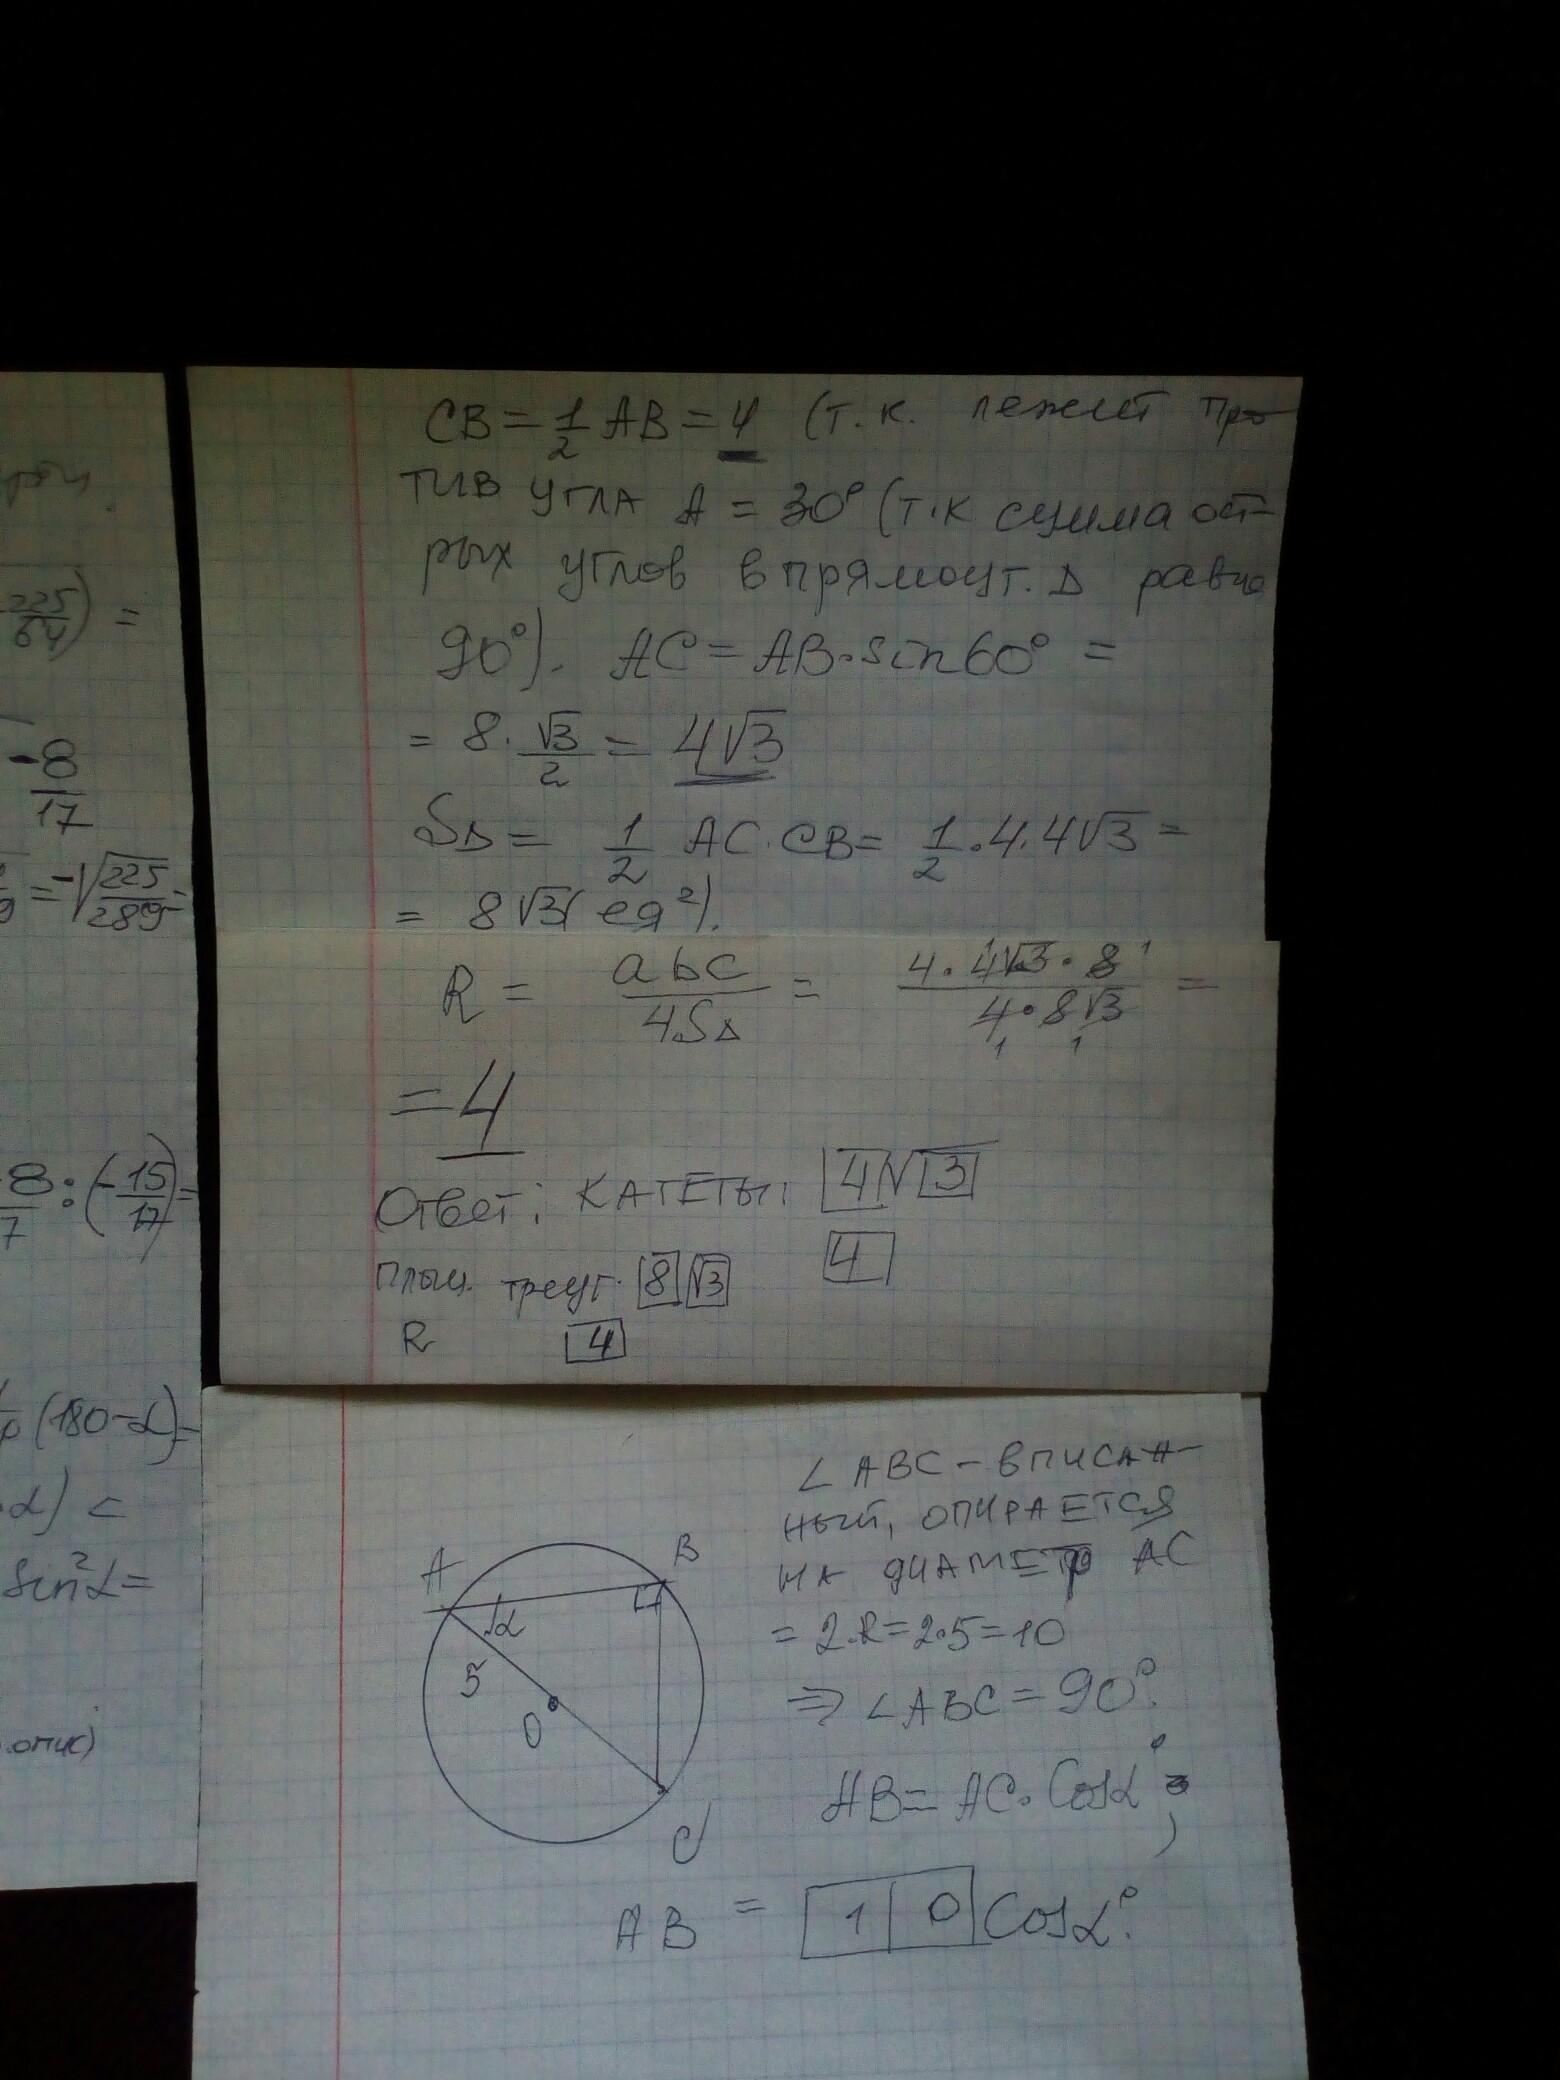 CB = 1/2 AB = 4 (т.к. лежит про-
тив угла A = 30° (т.к сумма ост-
рых углов в прямоуг. Δ равна
90°). AC = AB·sin60° =
= 8·√3/2 = 4√3
SΔ = 1/2 AC·CB = 1/2·4·4√3 =
= 8√3 (ед²).
R = abc/4SΔ = 4·4√3·8/4·8√3 =
1
1 1
= 4
Ответ: катеты: 4√3
4
площ. треуг. 8√3
R 4
∠ABC – вписан-
ный, опирается
на диаметр AC
= 2·R = 2·5 = 10
⇒ ∠ABC = 90°.
AB = AC·Cosα°;
AB = 10 Cosα°.
A
B
α
5
O
C
225/64) =
-8/17
= -√225/289 =
8/7 : (-15/17) =
(180-α) =
α) <
sin²α =
опис)